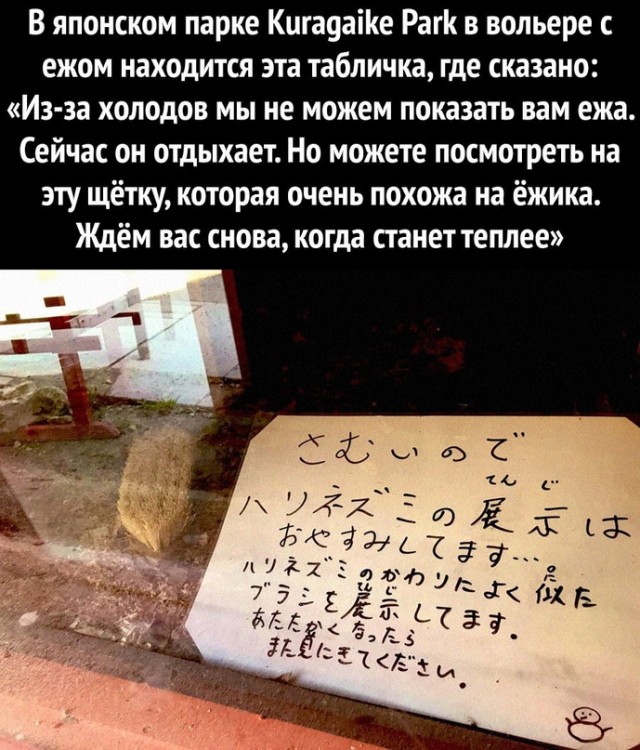 В японском парке Kuragaike Park в вольере с
ежом находится эта табличка, где сказано:
«Из-за холодов мы не можем показать вам ежа.
Сейчас он отдыхает. Но можете посмотреть на
эту щётку, которая очень похожа на ёжика.
Ждём вас снова, когда станет теплее»
さむいので
てんじ
ハリネズミの展示は
おやすみしてます…
ハリネズミのかわりによく似た
ブラシを展示してます。
あたたかくなったら
また見にきてください。